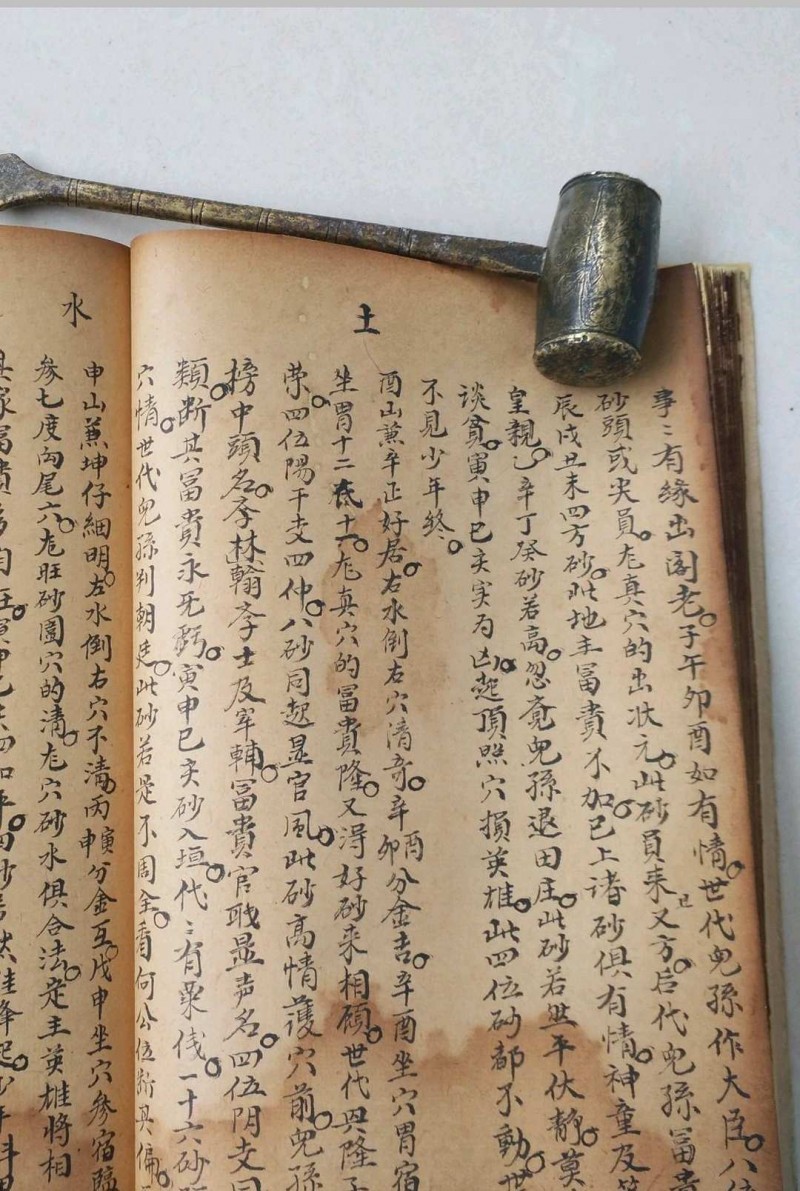 土
事〻有缘出阁老子午卯酉如有情世代児孫作大臣八
砂頭或尖員尨真穴的出状元此砂員来又方后代児孫冨貴
辰戌丑未四方砂此地主冨貴不加已上诸砂俱有情神童及
皇親乙辛丁癸砂若高忽竟児孫退田庄此砂若然平伏静莫
谈貧寅申巳亥実为凶起頂照穴損英雄此四位砂都不動世
不見少年终
酉山蒹辛正好居右水倒左穴清奇辛酉辛卯分金吉辛酉坐穴胃宿
坐胃十二底十一尨真穴的冨貴隆又淂好砂来相顧世代興隆
荣四位陽干支四仲八砂同起显官風此砂高情護穴前児孫
榜中頭名李林翰李士及宰輔冨貴官耿显声名四位阴支同
類断其冨貴永无虧寅申巳亥砂入垣代〻有粟伐一十六砂
穴情世代児孫判朝廷此砂若是不周全看何公位断其偏
水
申山蒹坤仔細明左水倒右穴不清丙申丙寅分金互戊申坐穴参宿臨
参七度向尾六尨旺砂園穴的清尨穴砂水俱合法定主英雄将相